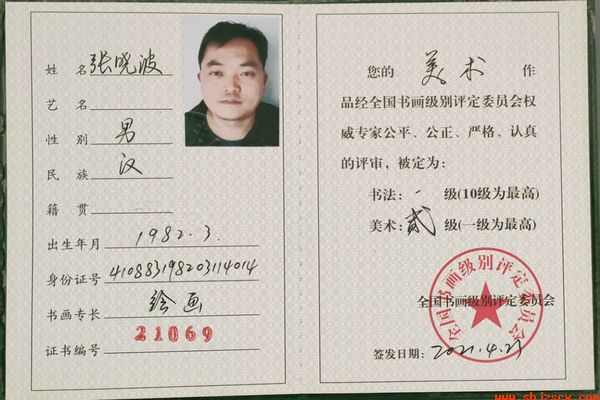 姓名 张晓波
艺名
性别 男
民族 汉
籍贯
出生年月 1982.3.
身份证号 410883198203114014
书画专长 绘画
证书编号 21069
您的 美术 作
品经全国书画级别评定委员会权
威专家公平、公正、严格、认真
的评审，被定为：
书法：级(10级为最高)
美术：贰 级(一级为最高)
全国书画级别评定委员会
全国书画级别评定委员会
签发日期：2021.4.21
www.shjzscx.com